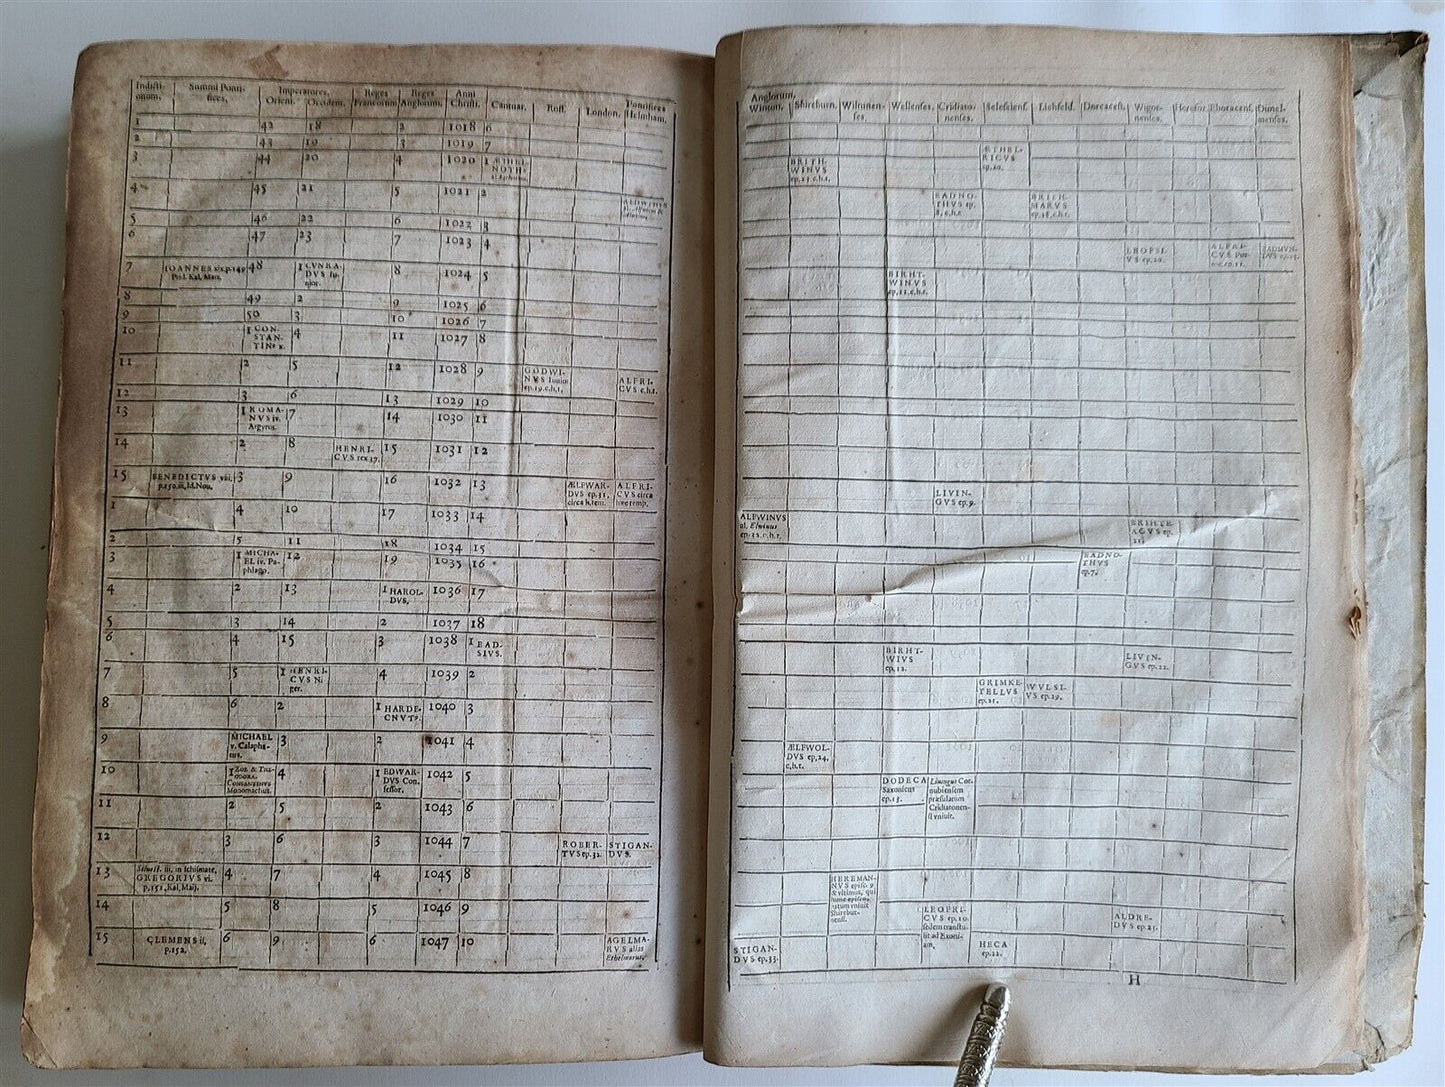 Indicti-onum. Summi Ponti-fices, Imperatores. Orient. Occident. Reges Francorum Reges Anglorum. Anni Christi. Cantuar. Roff. London. Pontifices Helmham.
1 42 18 2 1018 6
2 43 19 3 1019 7
3 44 20 4 1020 1 ÆTHEL-NOTH
4 45 21 5 1021 2
5 46 22 6 1022 3
6 47 23 7 1023 4
7 IOANNES xix.p.149 48 1 CVNRA-DVS 8 1024 5
8 49 2 9 1025 6
9 50 3 10 1026 7
10 1 CON-STAN-TIN9 x. 4 11 1027 8
11 2 5 12 1028 9 GODWI-NVS Iunior ep.19.c.h.t. ALFRI-CVS c.h.t.
12 3 6 13 1029 10
13 1 ROMA-NVS iv. Argyrus. 7 14 1030 11
14 2 8 HENRI-CVS rex 37. 15 1031 12
15 BENEDICTVS viii. p.150.iii,Id.Nou. 3 9 16 1032 13 ÆLFWAR-DVS ep.31. circa h.tem. ALFRI-CVS circa hoc temp.
1 4 10 17 1033 14
2 5 11 18 1034 15
3 1 MICHA-EL iv. Pa-phlago. 12 19 1035 16
4 2 13 1 HAROL-DVS. 1036 17
5 3 14 2 1037 18
6 4 15 3 1038 1 EAD-SIVS.
7 5 1 HENRI-CVS Ni-ger. 4 1039 2
8 6 2 1 HARDE-CNVT9. 1040 3
9 MICHAEL v. Calapha-tes. 3 2 1041 4
10 1 Zoe & The-odora. Constantinus Monomachus. 4 1 EDWAR-DVS Con-fessor. 1042 5
11 2 5 2 1043 6
12 3 6 3 1044 7 ROBER-TVS ep.32. STIGAN-DVS.
13 Siluest. iii. in schismate, GREGORIVS vi. p.151,Kal,Maij. 4 7 4 1045 8
14 5 8 5 1046 9
15 CLEMENS ii. p.152. 6 9 6 1047 10 AGELMA-RVS alias Ethelmarus.
Anglorum,
Winton. Shireburn. Wiltunen-ses. Wellenses. Cridiato-nenses. Selesiens. Lichfeld. Dorcacest. Wigor-nenses. Herefor. Eboracens. Dunel-menses.
BRITH-WINVS ep.23.c.h.t. ÆTHEL-RICVS ep.20.
EADNO-THVS ep. 8,c.h.t BRITH-MARVS ep.28,c.h.t.
LEOFSI-VS ep.20. ALFRI-CVS EADMVN-DVS
BIRHT-WINVS ep.11.c.h.t.
LIVIN-GVS ep.9.
ALFWINVS al. Elwinus ep.32.c.h.t. BRIHTE-AGVS ep. 21.
EADNO-THVS ep.7.
BIRHT-WIVS ep.12. LIVEN-GVS ep.22.
GRIMKE-TELLVS ep.21. WVLSI-VS ep.29.
ÆLFWOL-DVS ep.24. c,h.t.
DODECA Saxonicus ep.13. Liuingus Cor-nubiensem præsulatum Cridiatonen-si vniuit.
HEREMAN-NVS episc. 9 & vltimus, qui hunc episco-patum vniuit Shirebur-nensi.
LEOFRI-CVS ep.10. sedem transtu-lit ad Exoni-am. ALDRE-DVS ep.23.
STIGAN-DVS ep.33. HECA ep.22.
H